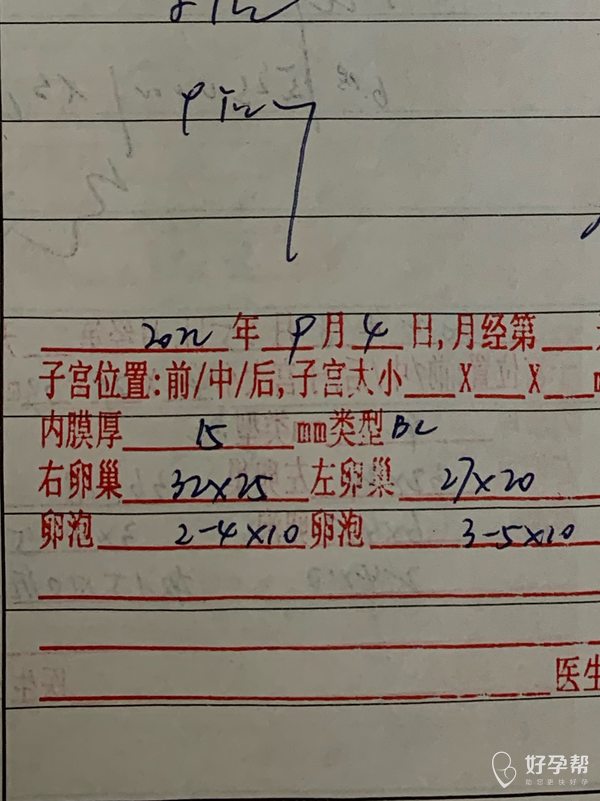 2022年9月4日,月经第
子宫位置:前/中/后,子宫大小___X___X___
内膜厚 15 mm类型BC
右卵巢 32×25 左卵巢 27×20
卵泡 2-4×10 卵泡 3-5×10
医生
好孕帮
助您更快好孕